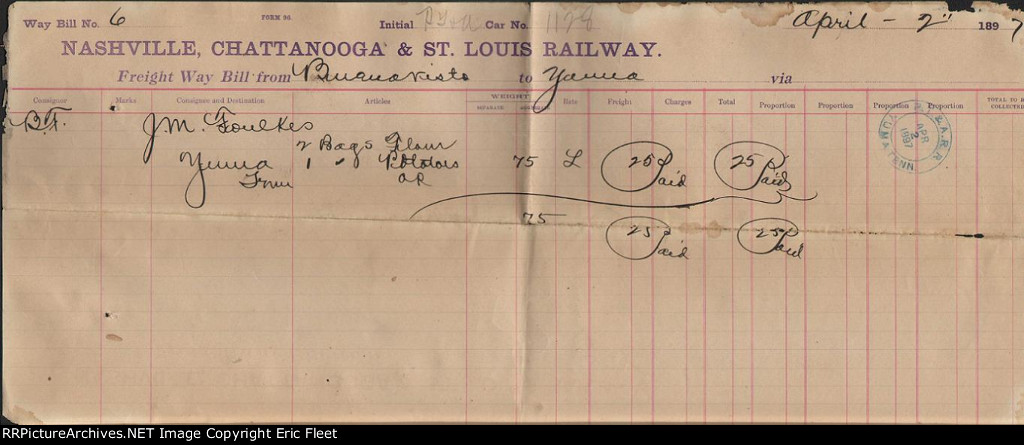 Way Bill No. 6 FORM 86. Initial P&A Car No. 1198 April - 2" 1897
NASHVILLE, CHATTANOOGA & ST. LOUIS RAILWAY.
Freight Way Bill from Buenavista to Yuma via
Consignor Marks Consignee and Destination Articles WEIGHT Rate Freight Charges Total Proportion Proportion Proportion Proportion TOTAL TO B
COLLECTED
B.F. J.M. Foulkes
2 Bags Flour
Yuma 1 " Potatoes 75 L 25 Paid 25 Paid
Tenn OR
75 25 Paid 25 Paid
& A. R. R.
APR
2
1897
YUMA TENN
RRPictureArchives.NET Image Copyright Eric Fleet